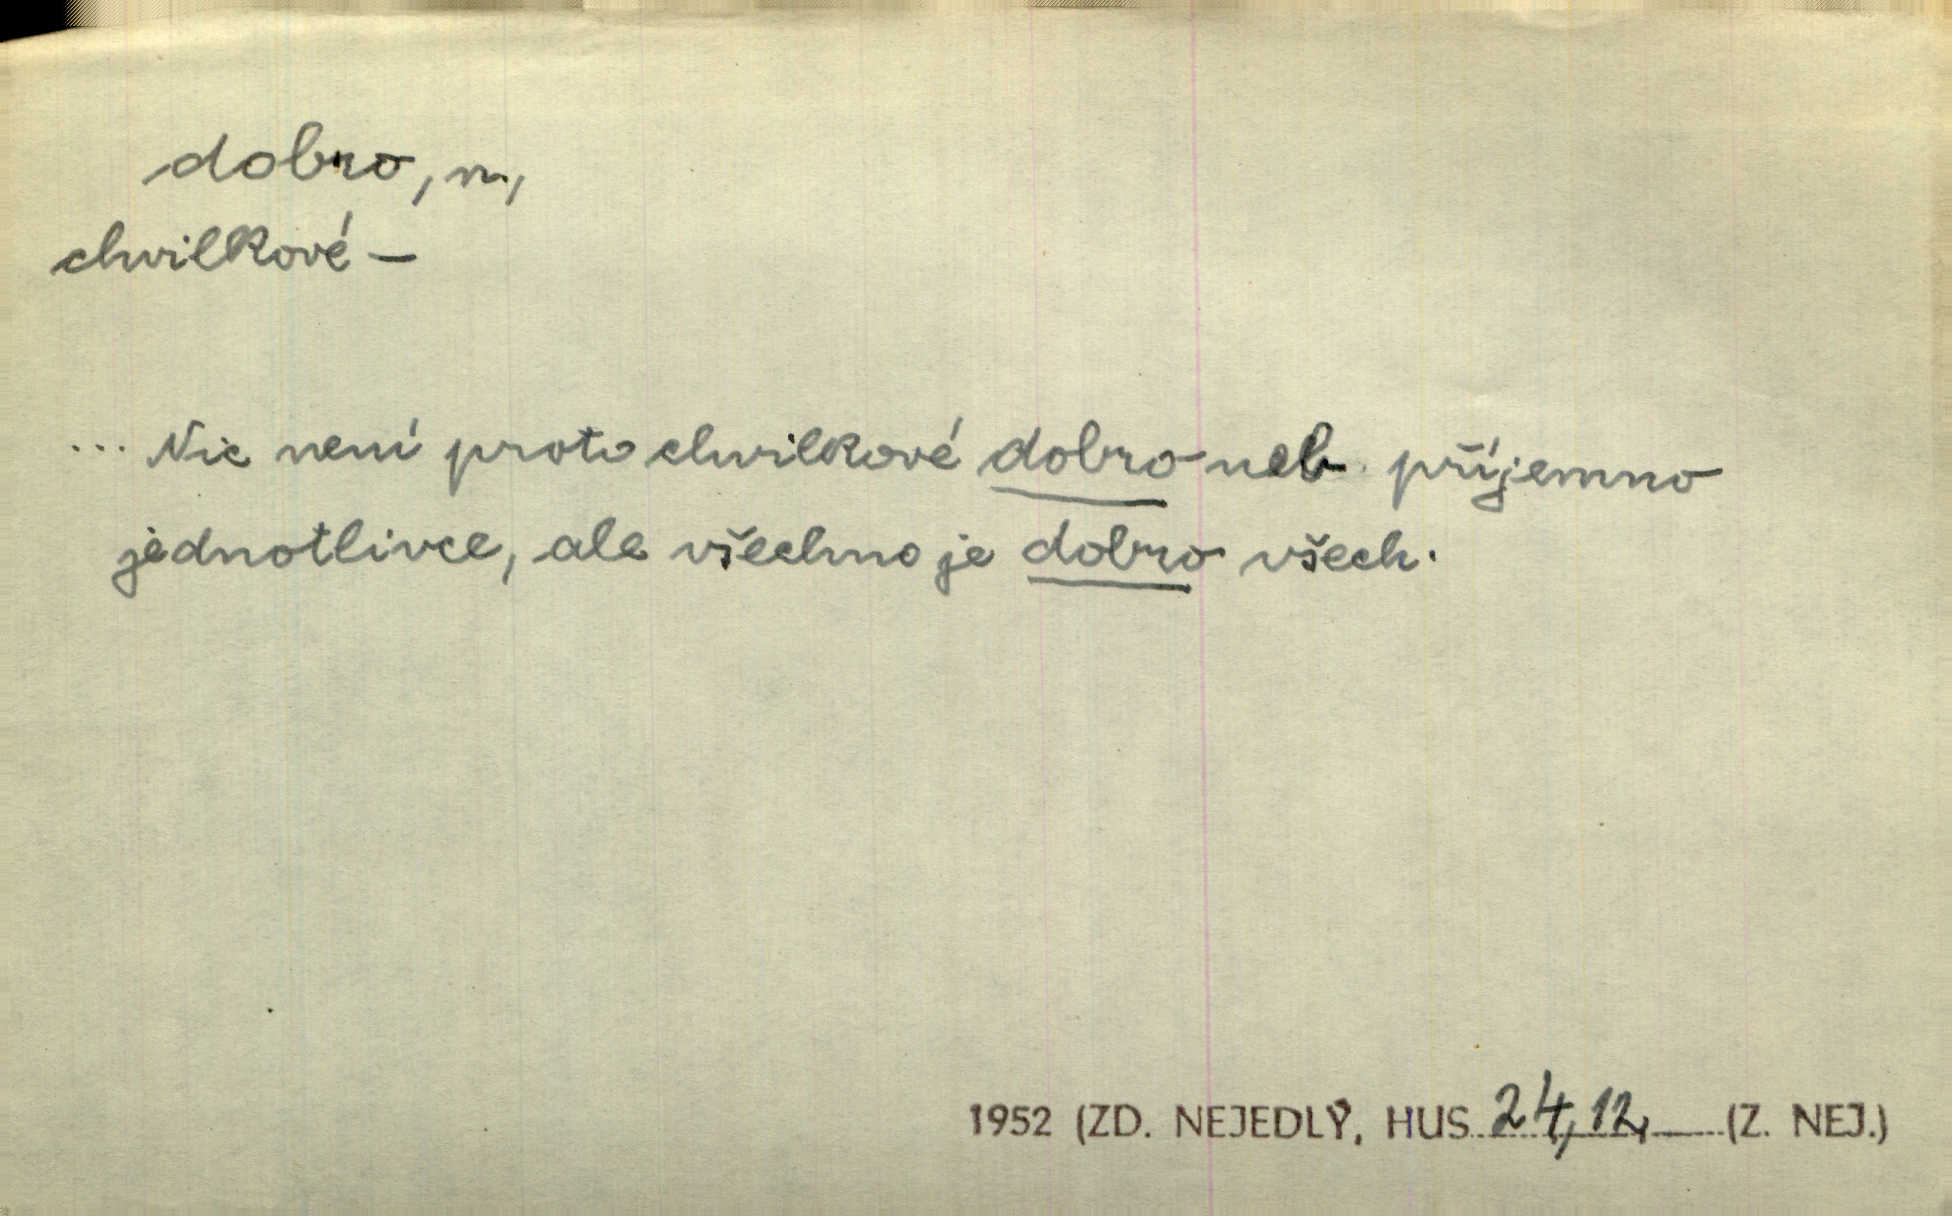 dobro, n.,
chvilkové –
... Nic není proto chvilkové dobro neb příjemno
jednotlivce, ale všechno je dobro všech.
1952 (ZD. NEJEDLÝ, HUS 24,12, — (Z. NEJ.)